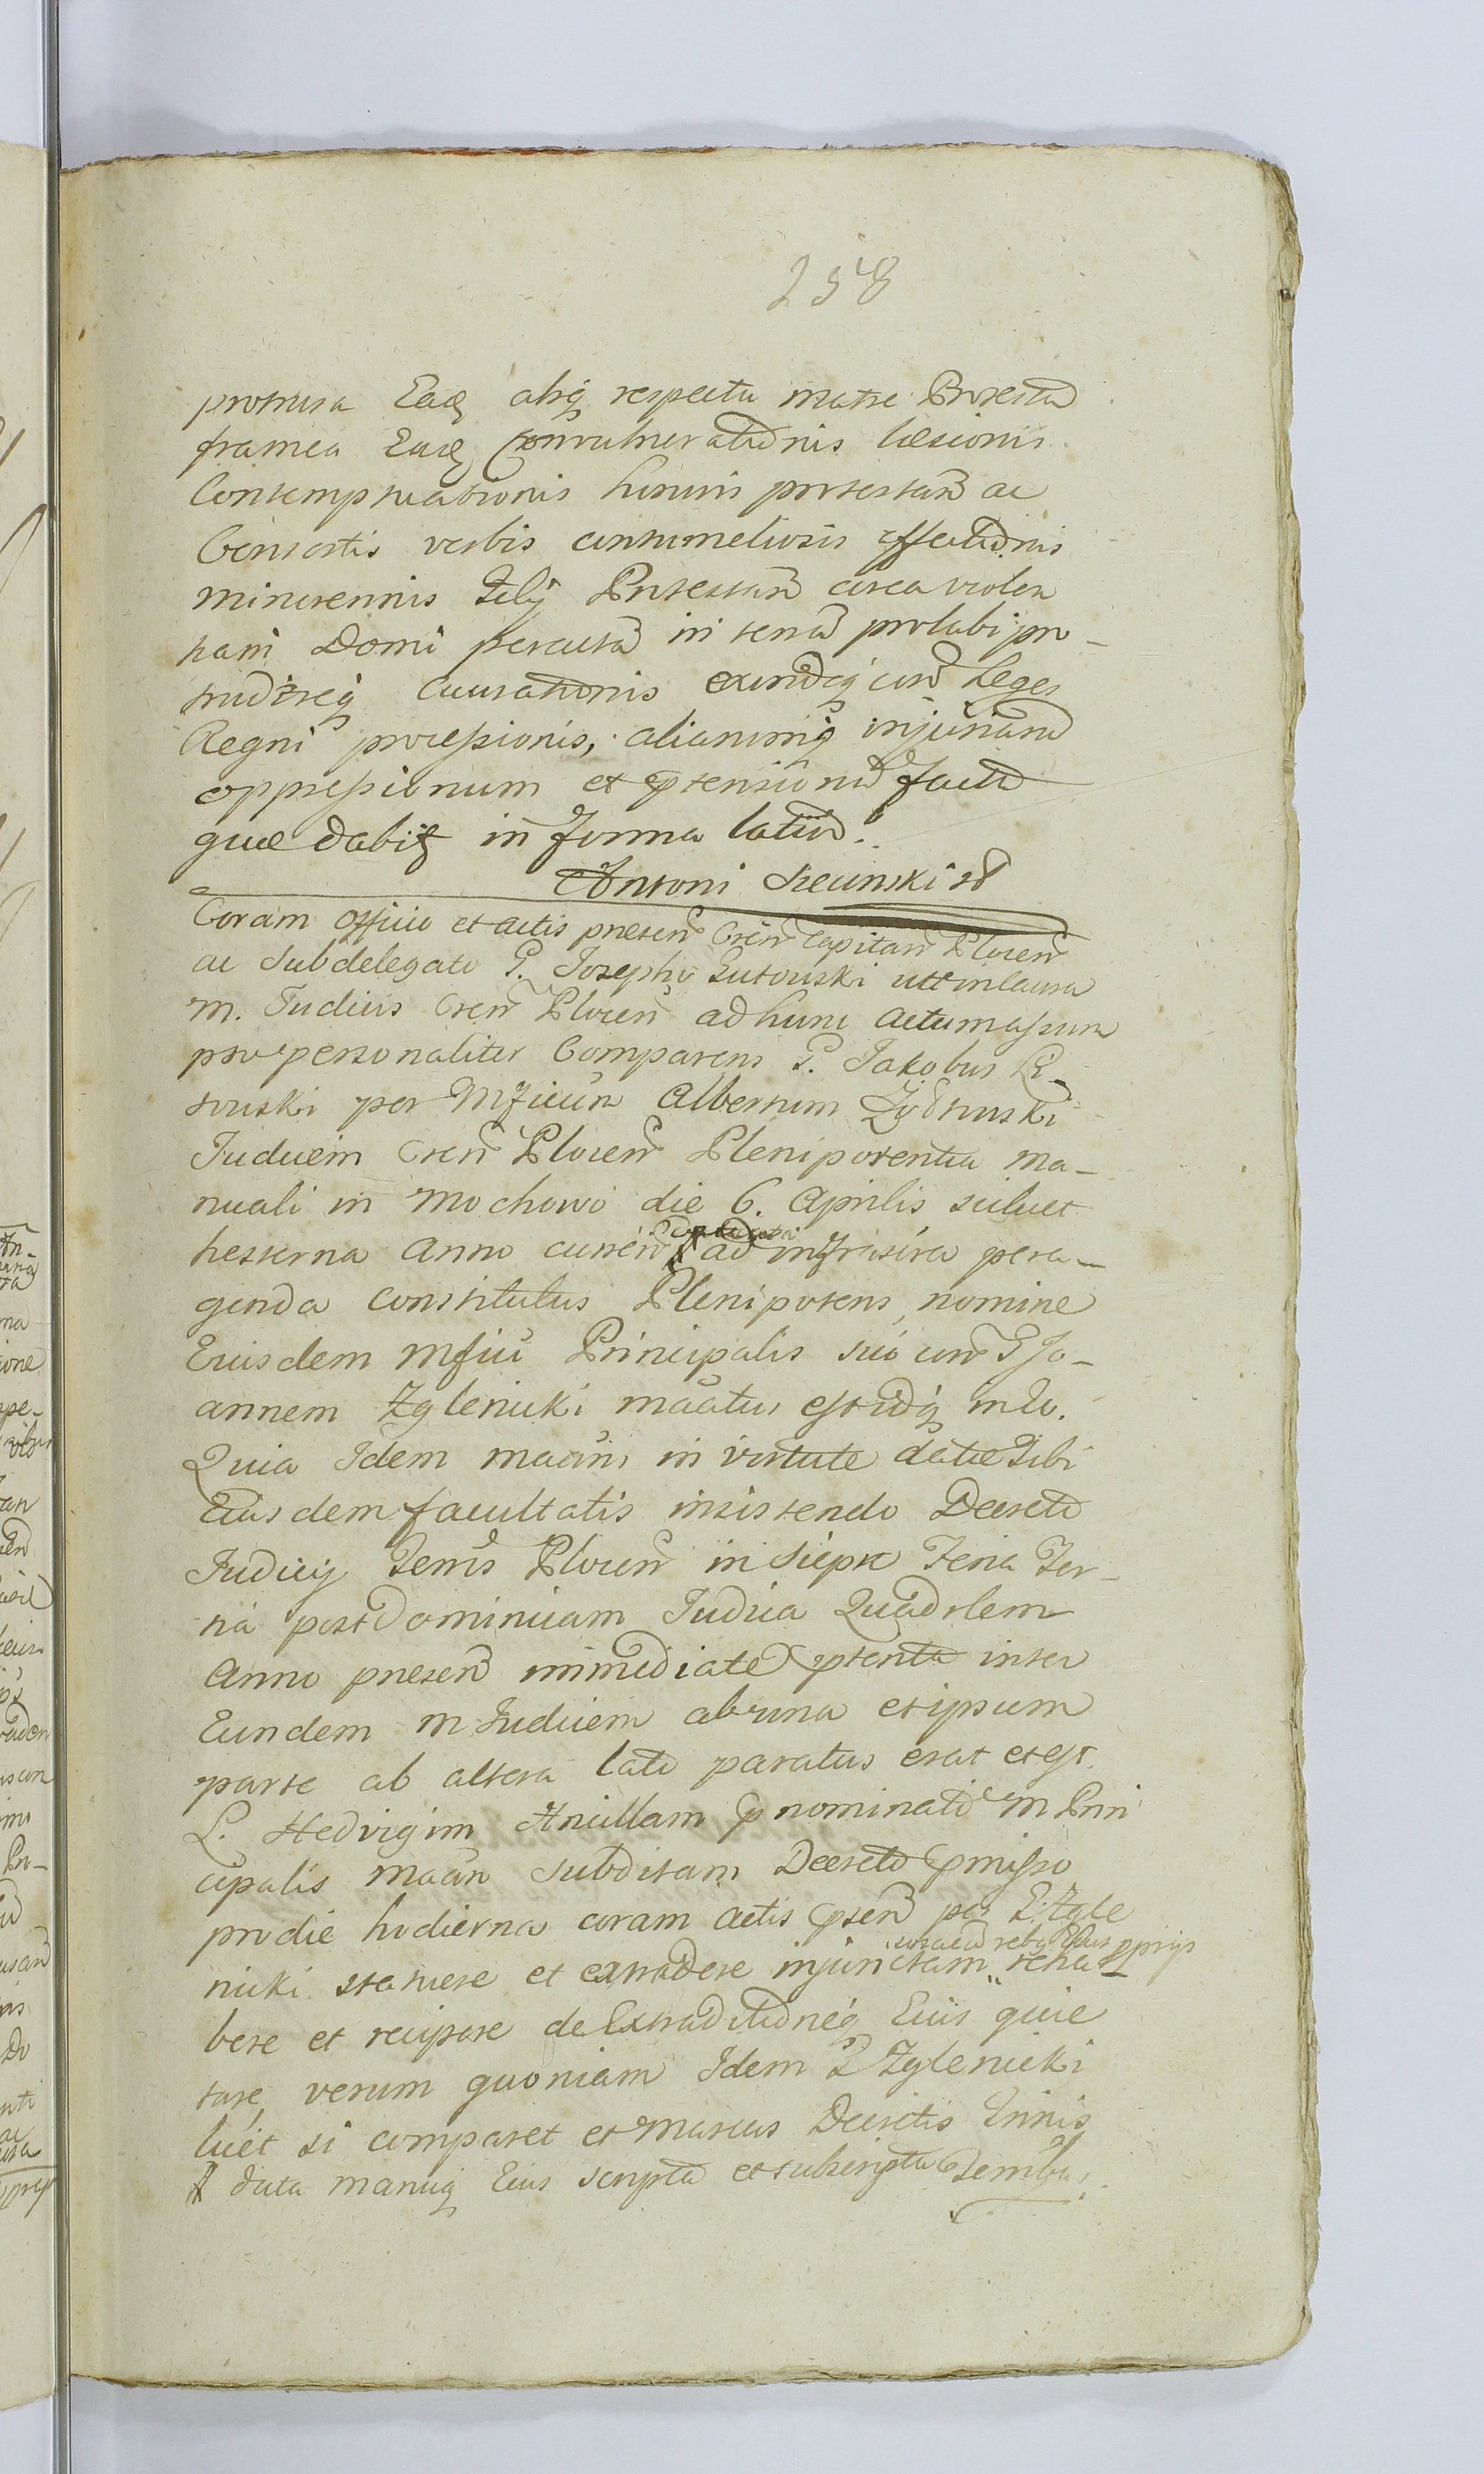 258
protrusa Eaq absq respectu matre Protestan
framea Eaq Convulnerationis læsionis
Contempnationis hominis protestan ac
Consortis verbis contumeliosis affectionis
minorennis Filij Protestan circa violen
tam Domi percutem in terram prolabi pro-
trudireq Causationis exindeq con Leges
Regni processionis, aliarumq injuriarum
oppressionum et ptensionum factâ
quæ dabit in forma latiori.
Antoni
Coram officio et actis præsen Cren Capitan Plocen
ac Subdelegato G. Josepho Rutouski utt in causa
M. Judicis Cren Plocen ad hunc actum assum
pto personaliter Comparens G. Jakobus Li-
touski per Mficum Albertum
Judicem Cren Plocen Plenipotentia ma-
nuali in Mochowo die 6. Aprilis scilicet
hesterna Anno curren ad infrascra pera-
genda constitutus Plenipotens, nomine
Eiusdem Mfici Principalis sui con G Jo-
annem Zglenicki maātus est idq in eo.
Quia Idem maāns in virtute datæ Sibi
Eiusdem facultatis insistendo Decreto
Judicij Terris Plocen in Siepc Feria Ter-
tia post Dominicam Judica Quadrlem
Anno præsen immediate ptento inter
Eundem M Judicem ab una et ipsum
parte ab altera lato paratus erat et est
L. Hedvigim Ancillam pnominati M Prin
cipalis maān subditam Decreto pmisso
pro die hodierna coram actis psen per G. Zgle
nicki statuere et extradere injunctam, cum rebus pprijs reha-
bere et recipere de Extraditioneq Eius quie
tare, verum quoniam Idem G Zglenicki
licet si comparet et Decretis
data manuq Eius scripta et subscripta